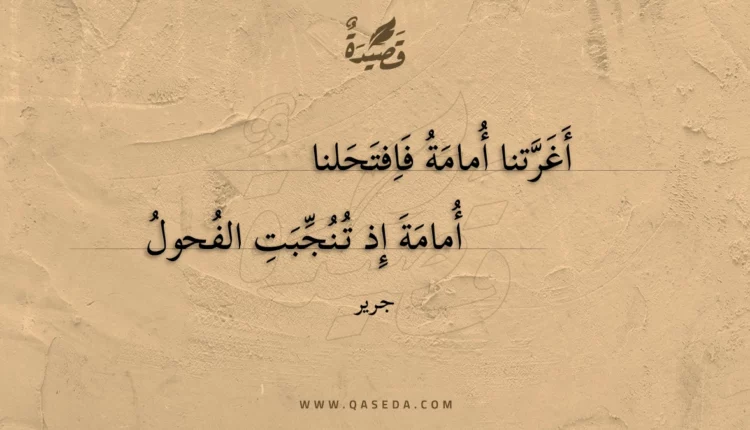 قَصِيدَةٌ
أَغَرَّتنا أُمامَةُ فَاِفتَحَلنا
أُمامَةَ إِذ تُنُجِّبَتِ الفُحولُ
جرير
WWW.QASEDA.COM